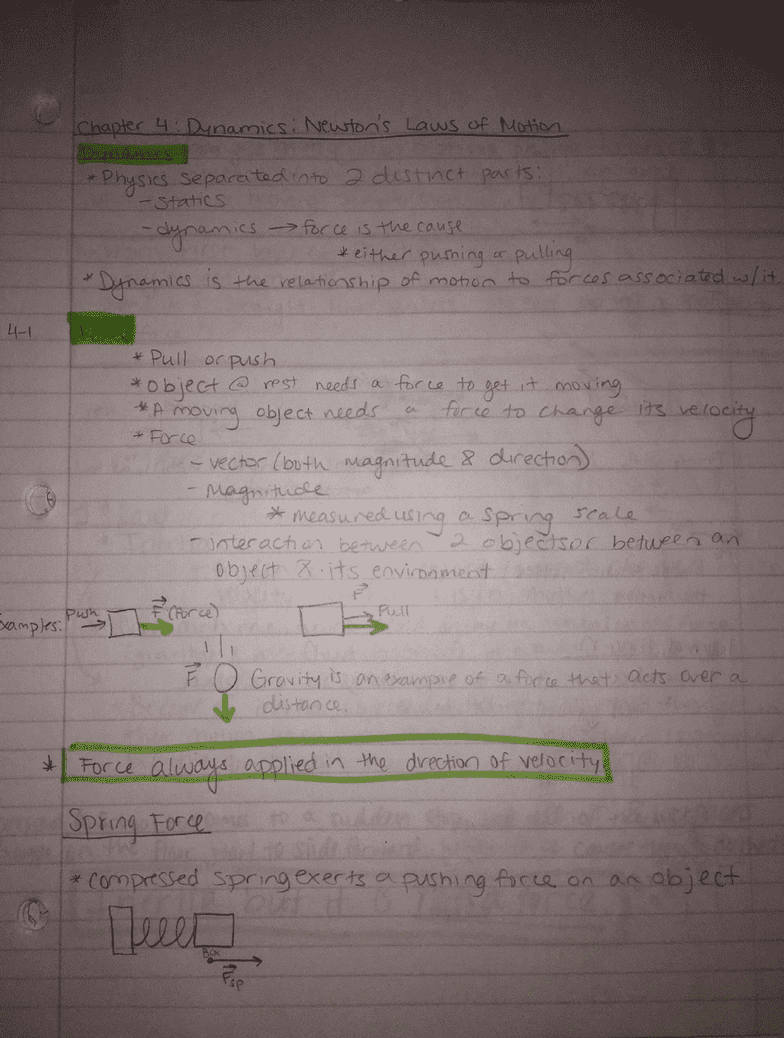 Chapter 4: Dynamics: Newton's Laws of Motion
Dynamics
* Physics separated into 2 distinct parts:
- statics
- dynamics → force is the cause
* either pushing or pulling
* Dynamics is the relationship of motion to forces associated w/it
4-1
* Pull or push
* object @ rest needs a force to get it moving
* A moving object needs a force to change its velocity
* Force
- vector (both magnitude & direction)
- Magnitude
* measured using a spring scale
- interaction between 2 objects or between an
object & its environment
xamples: push → F (Force) F Pull
F Gravity is an example of a force that acts over a
distance.
* Force always applied in the direction of velocity
Spring Force
* compressed spring exerts a pushing force on an object
Box
Fsp